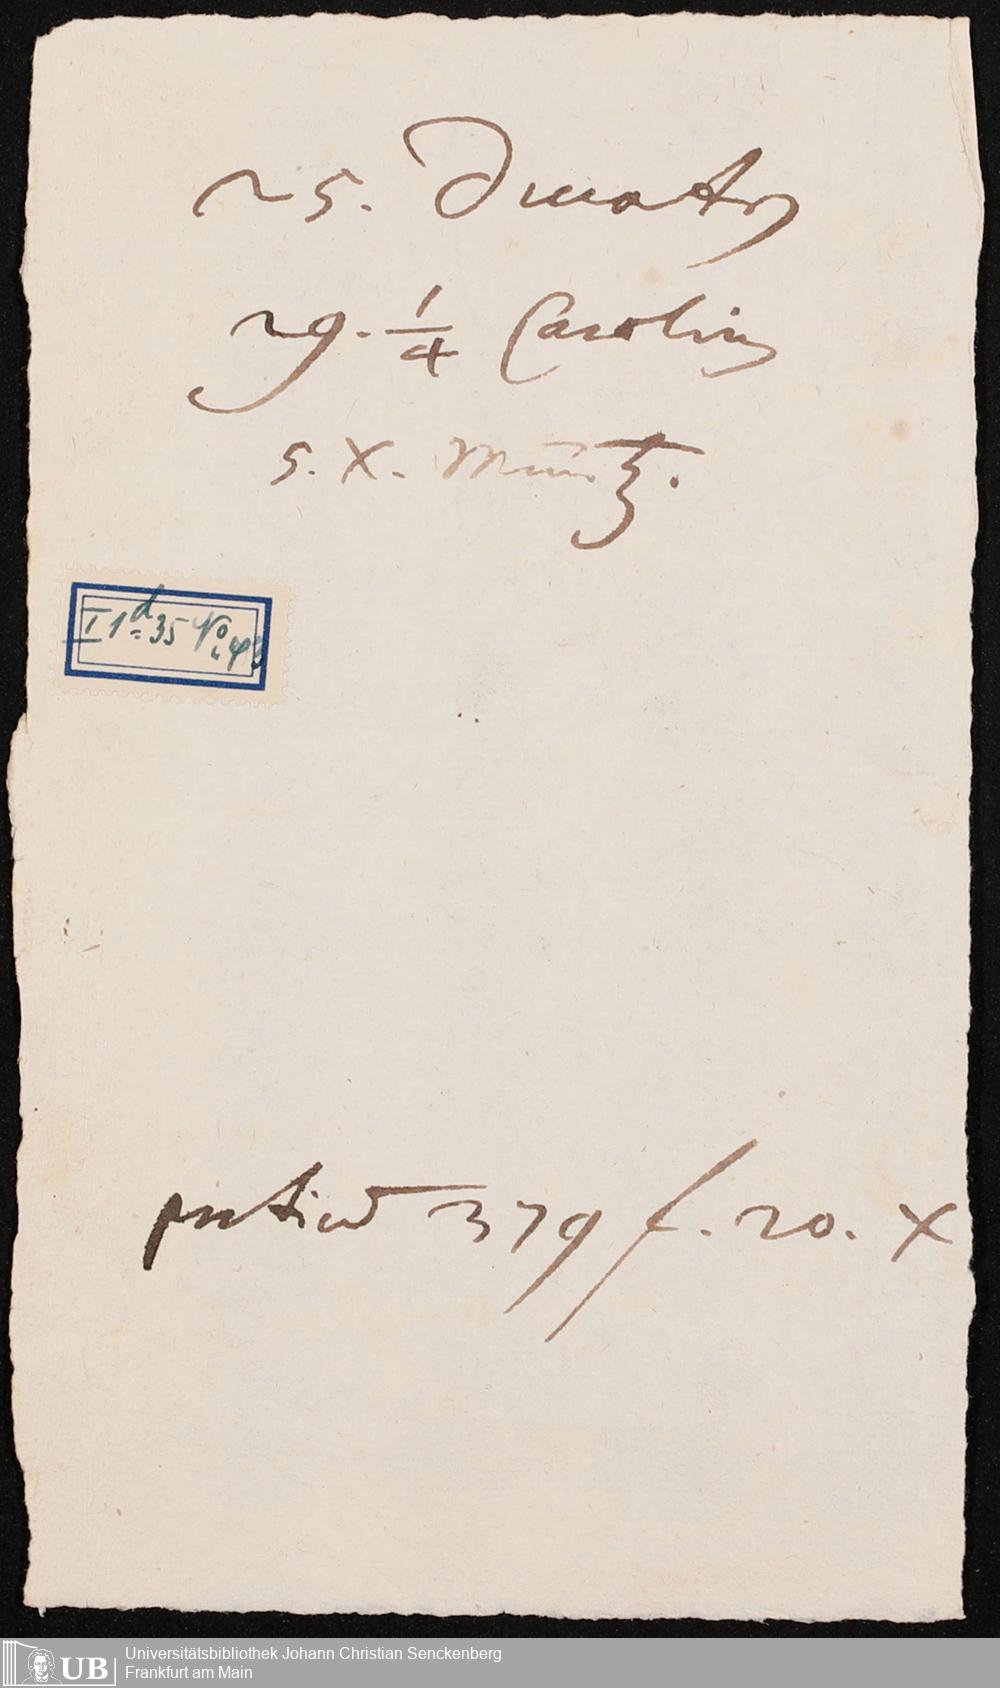 25. Ducaten
29. 1/4 Carolin
5. X. Müntz.
I 1 d 35 No. 43
379 f. 20. X
Universitätsbibliothek Johann Christian Senckenberg
Frankfurt am Main
UB